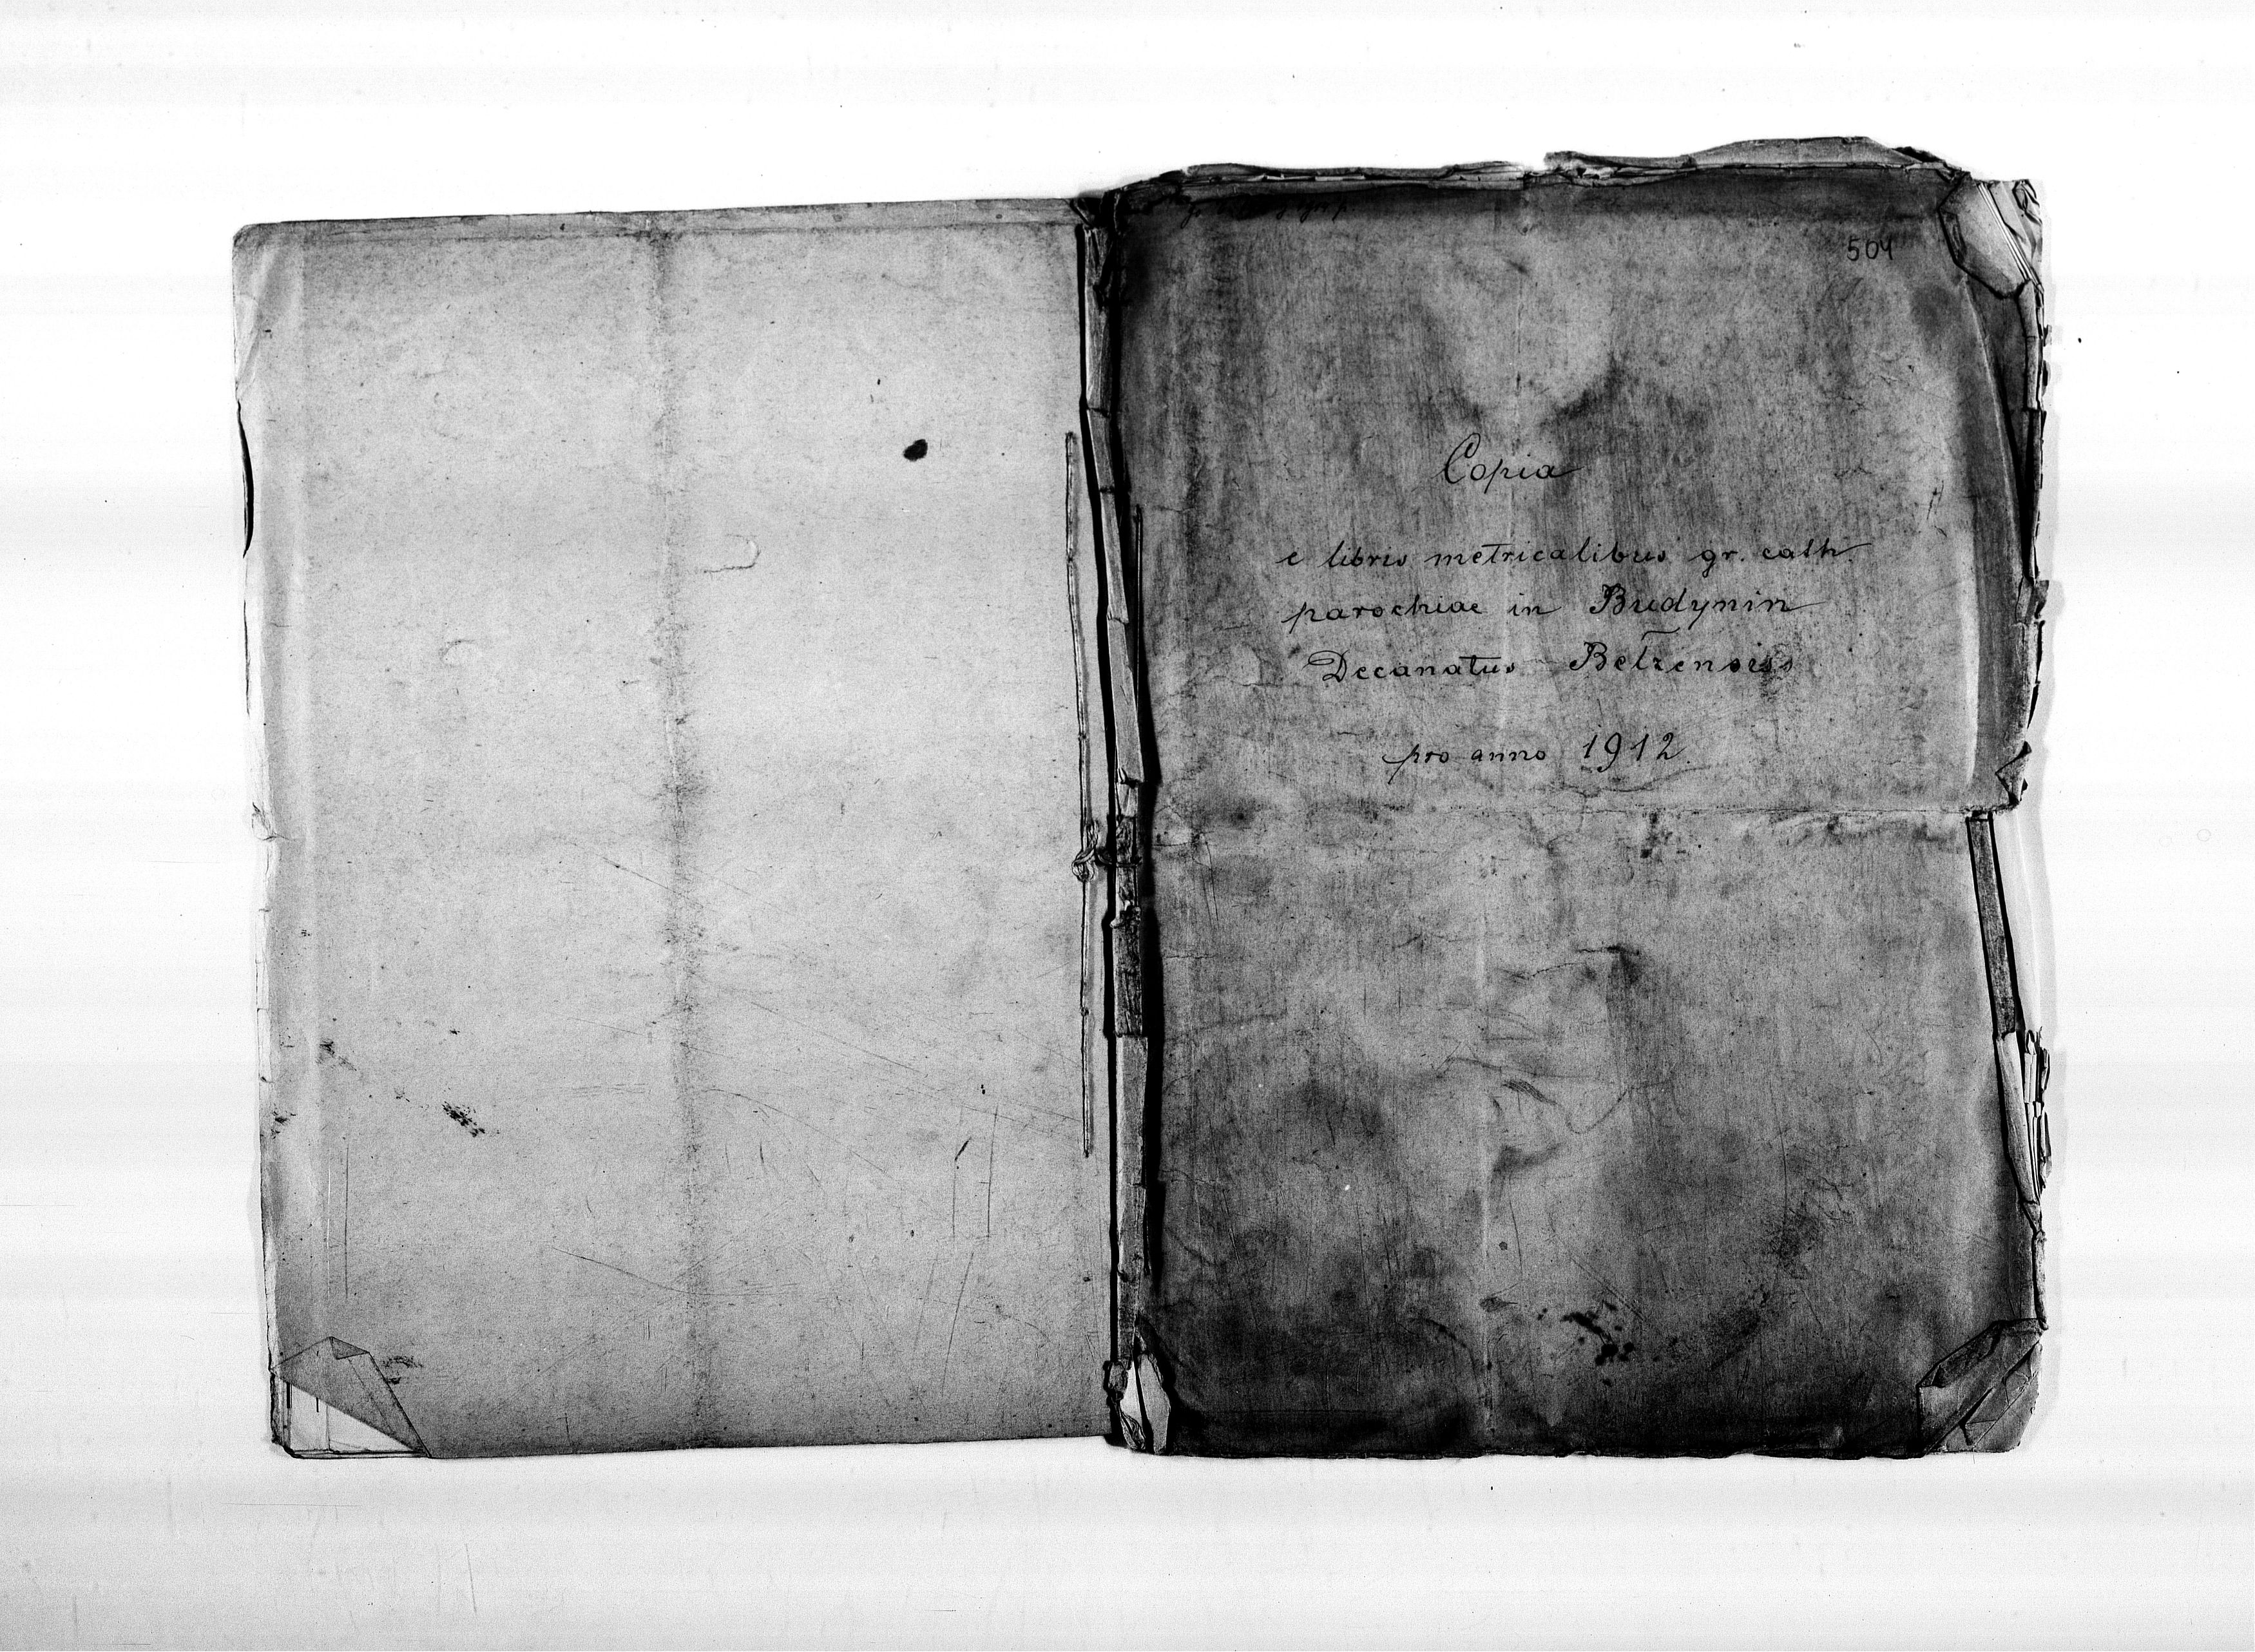 504
Copia
e libris metricalibus gr. cath
parochiae in Budynin
Decanatus Bełzensis
pro anno 1912.